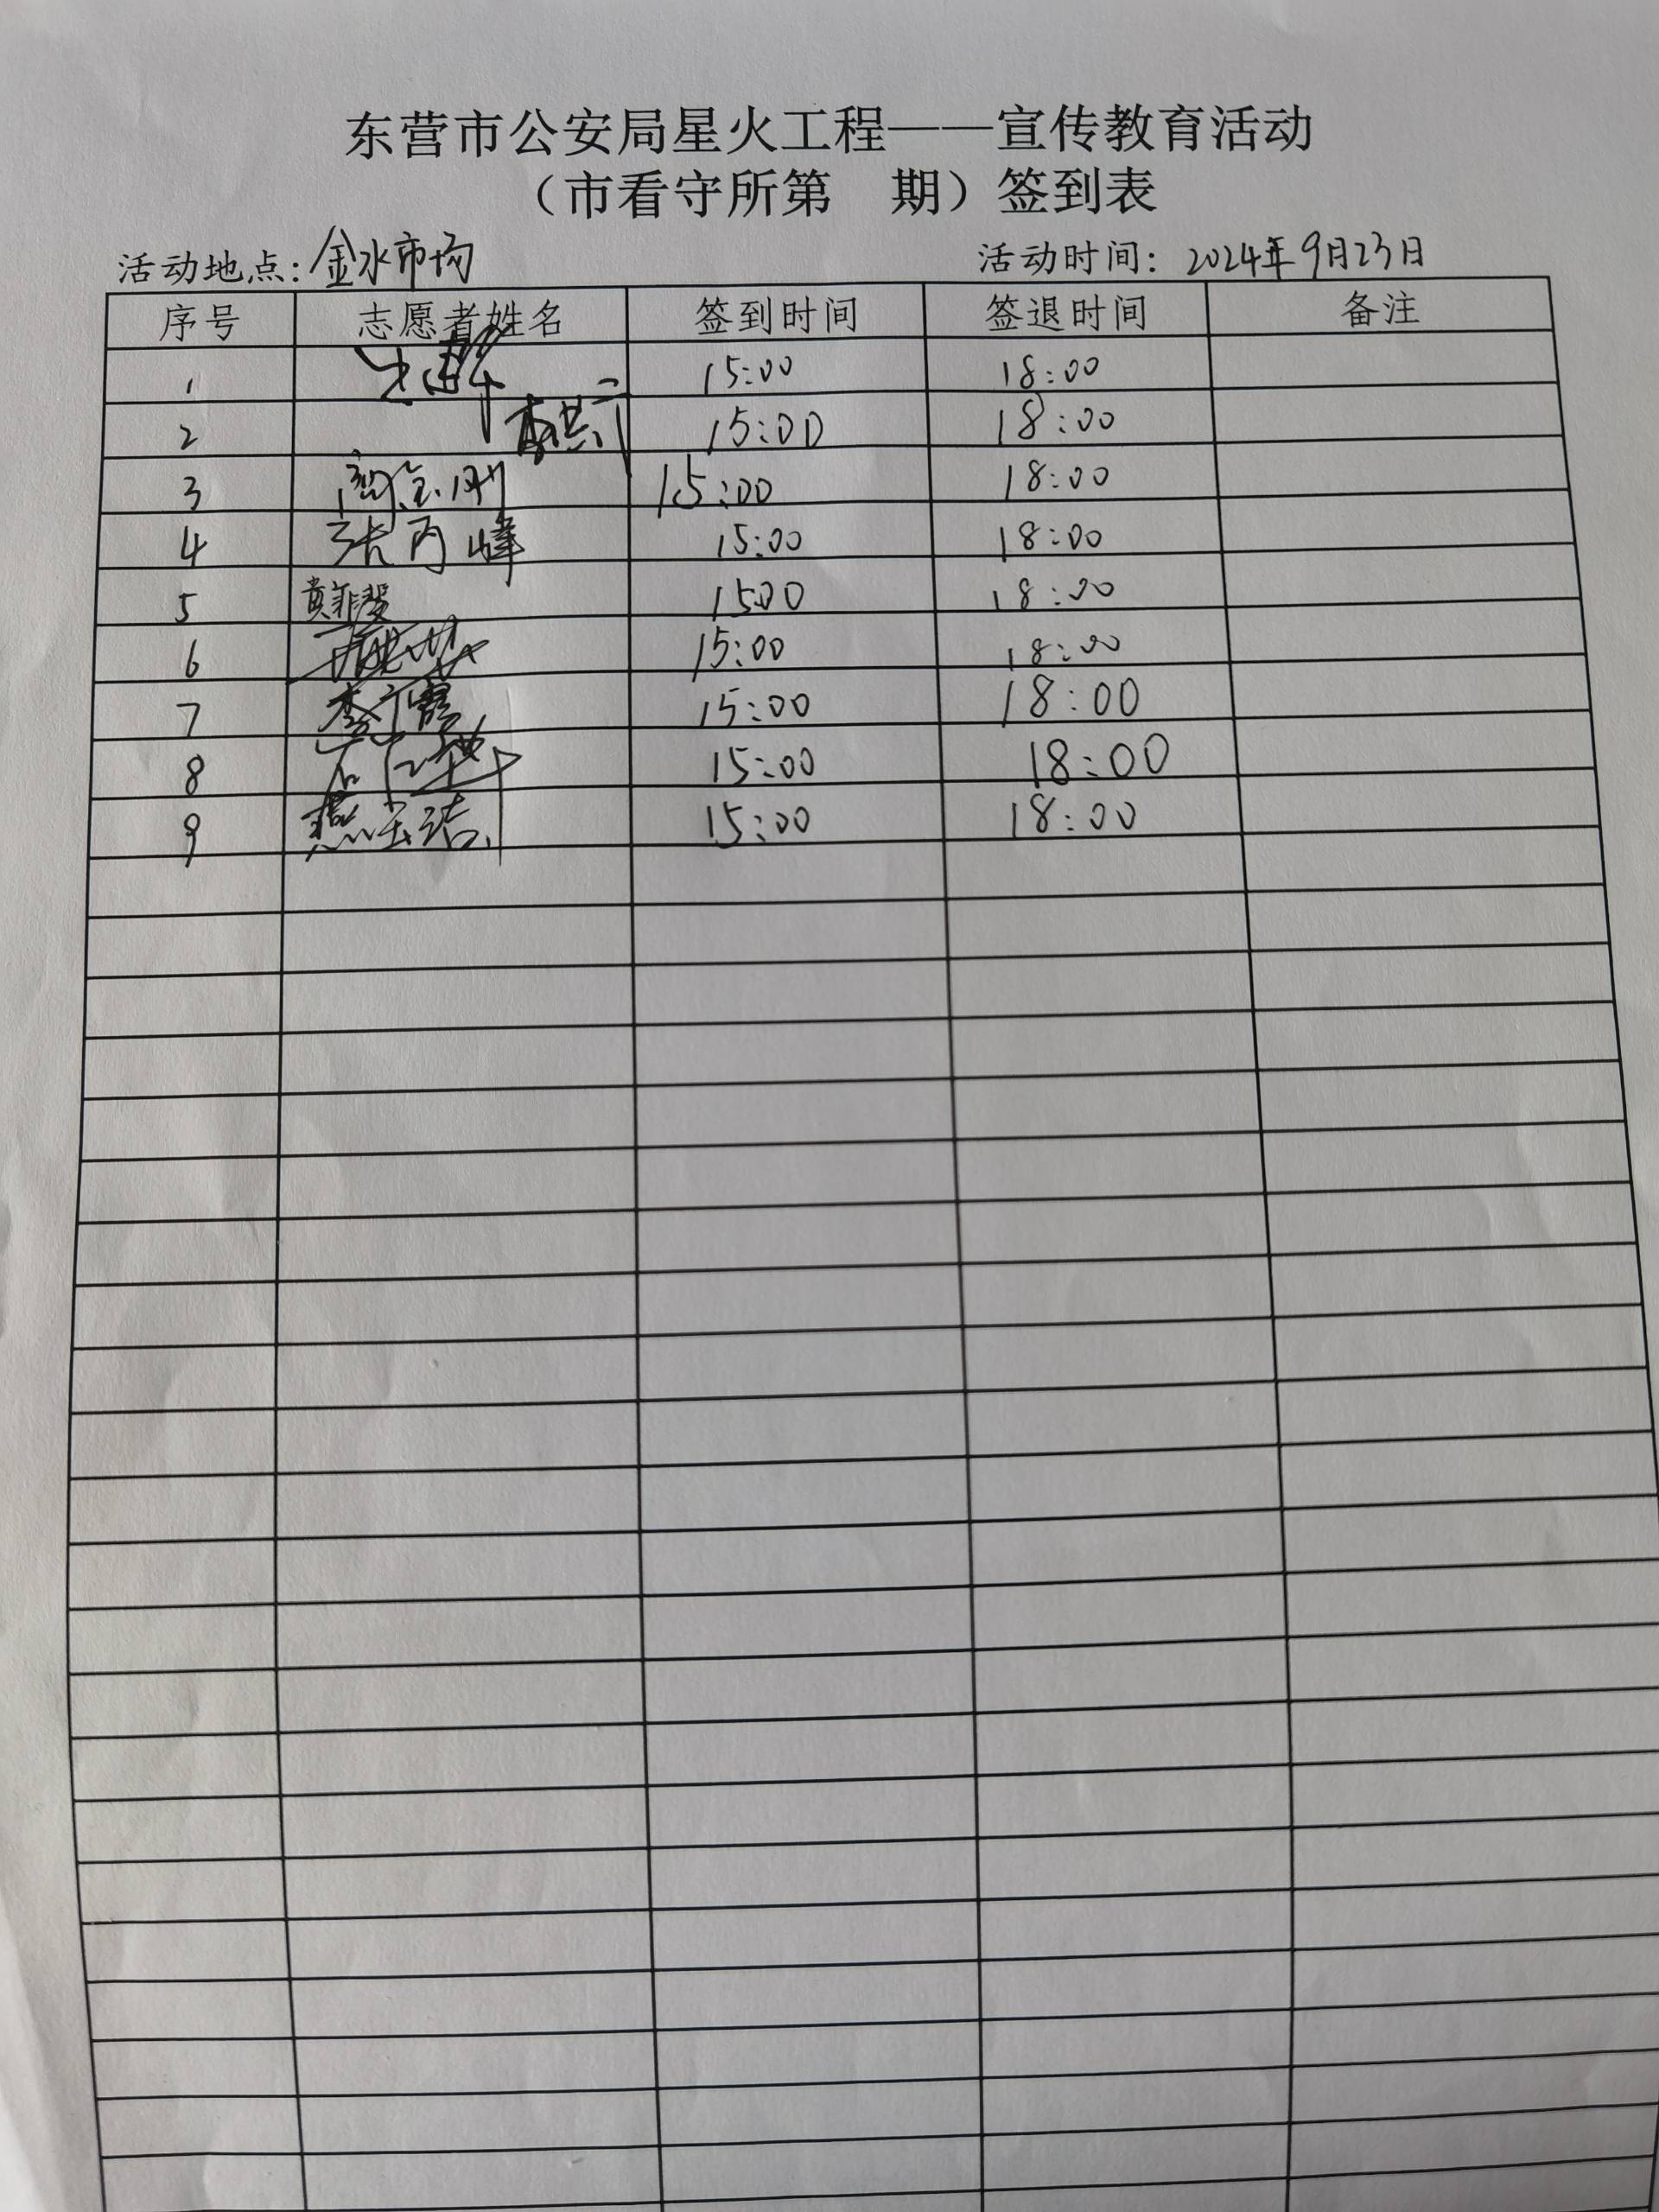 东营市公安局星火工程——宣传教育活动
（市看守所第 期）签到表
活动地点：金水市场 活动时间：2024年9月23日
序号 志愿者姓名 签到时间 签退时间 备注
1 15:00 18:00
2 15:00 18:00
3 金刚 15:00 18:00
4 张丙峰 15:00 18:00
5 黄菲 1500 18:00
6 15:00 18:00
7 李 霞 15:00 18:00
8 15:00 18:00
9 15:00 18:00